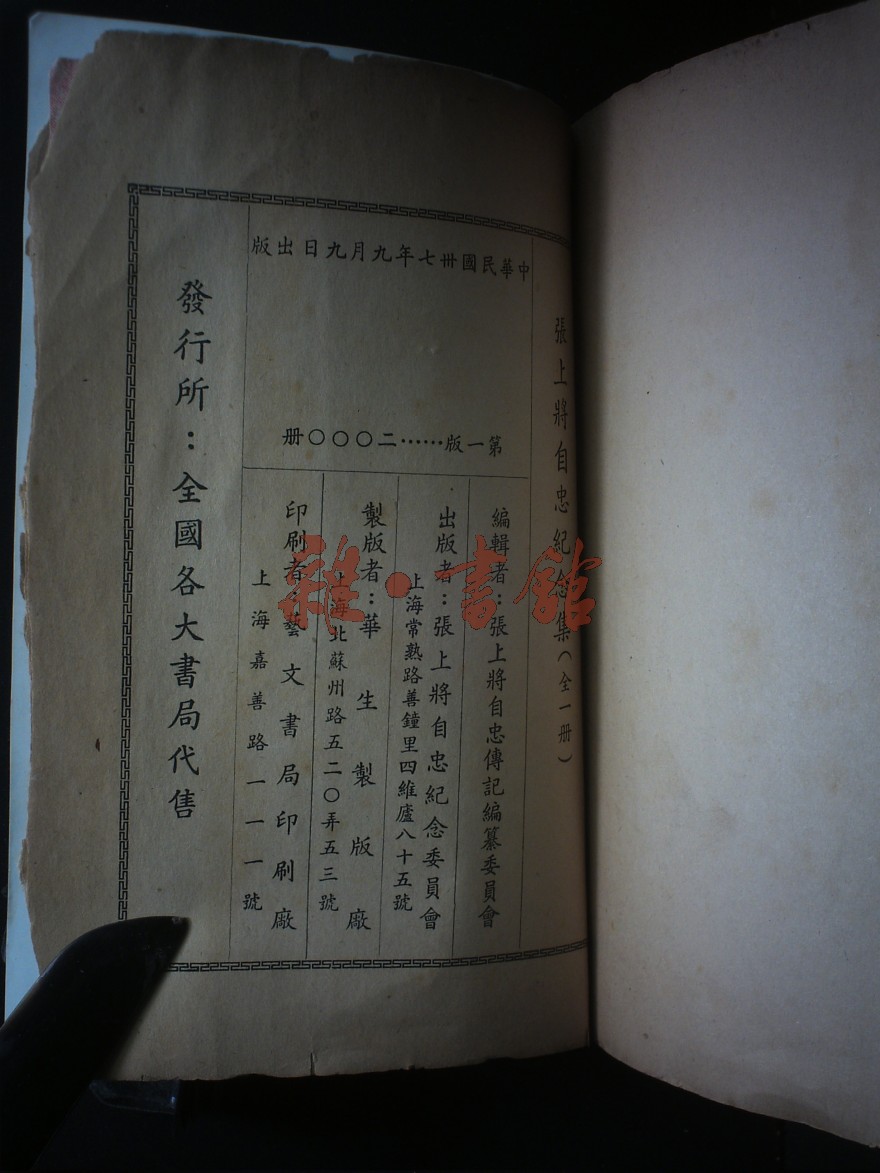 張上將自忠紀念集(全一册)
中華民國卅七年九月九日出版
第一版……二〇〇〇册
編輯者:張上將自忠傳記編纂委員會
出版者:張上將自忠紀念委員會
上海常熟路善鐘里四維廬八十五號
製版者:華生製版廠
上海北蘇州路五二〇弄五三號
印刷者:藝文書局印刷廠
上海嘉善路一一一號
發行所:全國各大書局代售
雜·書館